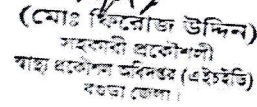 (মোঃ ফিরোজ উদ্দিন)
সহকারী প্রকৌশলী
স্বাস্থ্য প্রকৌশল অধিদপ্তর (এইচইডি)
বগুড়া জেলা।